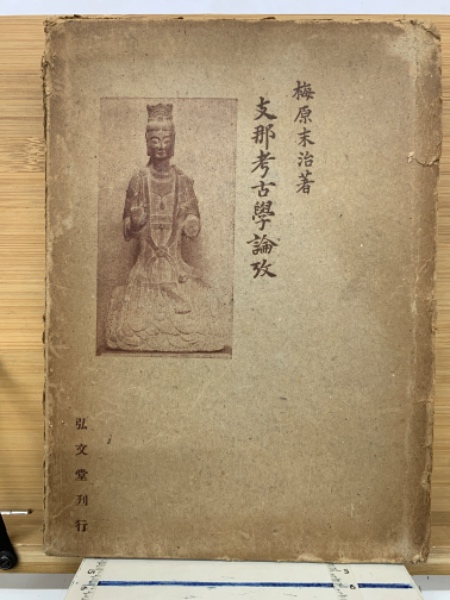 梅原末治著
支那考古學論攷
弘文堂刊行